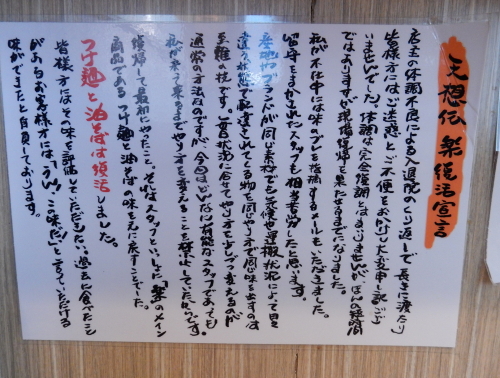 天想伝 梨 復活宣言
店主の体調不良による入退院のくり返しで長きに渡たり
皆様方にはご迷惑とご不便をおかけし大変申し訳ござ
いませんでした。体調は完全復調とはまいりませんが、ほんの短時間
ではありますが現場復帰を果たすまでになりました。
私が不在中には味のブレを指摘するメールもいただきました。
留守をまかされたスタッフも相当苦労したと思います。
産地やブランドが同じ素材でも天候や運搬状況によって日々
違う状態で配達されてくる物を同じやり方で同じ味を出すのは
至難の技です。毎日状況に合せてやり方を少しづつ変えるのが
通常の方法なのですが、今回はどんなに有能なスタッフであっても
私が来て来るまでやり方を変えることを禁止していたからです。
復帰して最初にやったこと、それはスタッフといっしょに「梨」のメイン
商品であるつけ麺と油そばの味を元に戻すことでした。
つけ麺と油そばは復活しました。
皆様方にはその味を評価していただきたい。過去に食べたこと
があるお客様方には、「うん！この味だ！」と言っていただける
味ができたと自負しております。